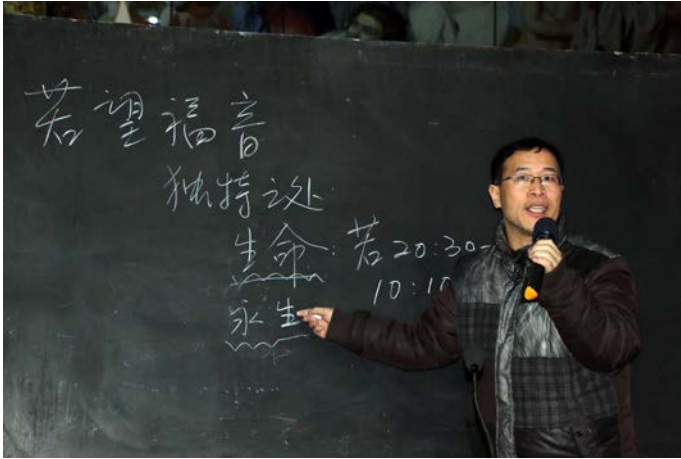 若望福音
独特之处:
生命: 若20:30-
10:10
永生